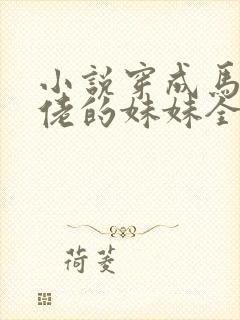 小説穿成馬
佬的妹妹全
荷菱